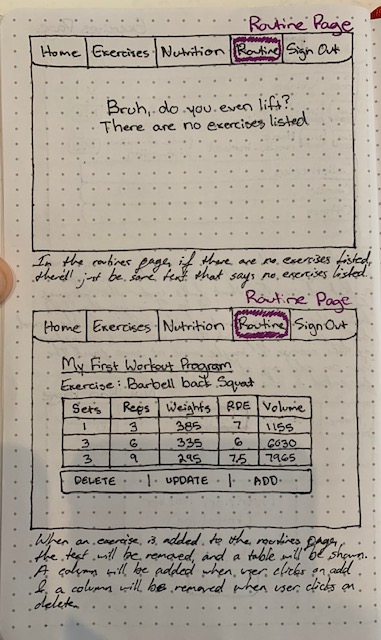 Routine Page
Home Exercises Nutrition Routine Sign Out
Bruh, do you even lift?
There are no exercises listed
In the routines page, if there are no exercises listed,
there'll just be some text that says no exercises listed.
Routine Page
Home Exercises Nutrition Routine Sign Out
My First Workout Program
Exercise: Barbell back Squat
Sets Reps Weights RPE Volume
1 3 385 7 1155
3 6 335 6 6030
3 9 295 7.5 7965
DELETE | UPDATE | ADD
When an exercise is added to the routines page,
the text will be removed, and a table will be shown.
A column will be added when user clicks on add
& a column will be removed when user clicks on
delete.